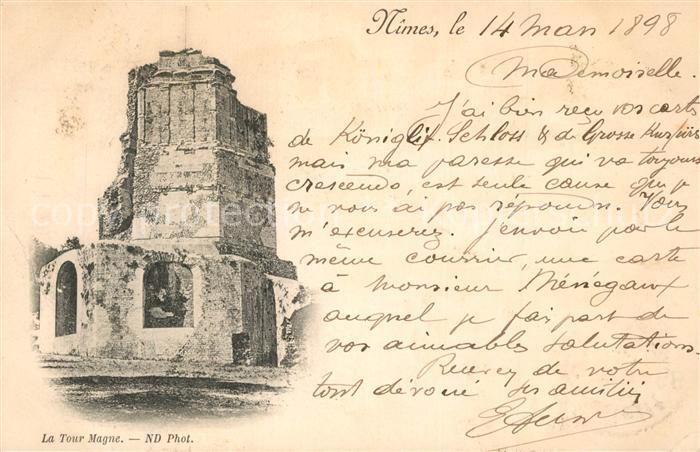 Nîmes, le 14 Mars 1898
Mademoiselle.
J'ai bien reçu vos cartes
de Königlic. Schloss & d. Grosse Kurfürs
mais ma paresse qui va toujours
crescendo, est seule cause que je
ne vous ai pas répondu. Vous
m'excuserez. J'envoie par le
même courrier, une carte
à Monsieur Ménégaux
auquel je fais part de
vos aimables salutations.
Recevez de votre
tout dévoué ses amitiés
La Tour Magne. — ND Phot.